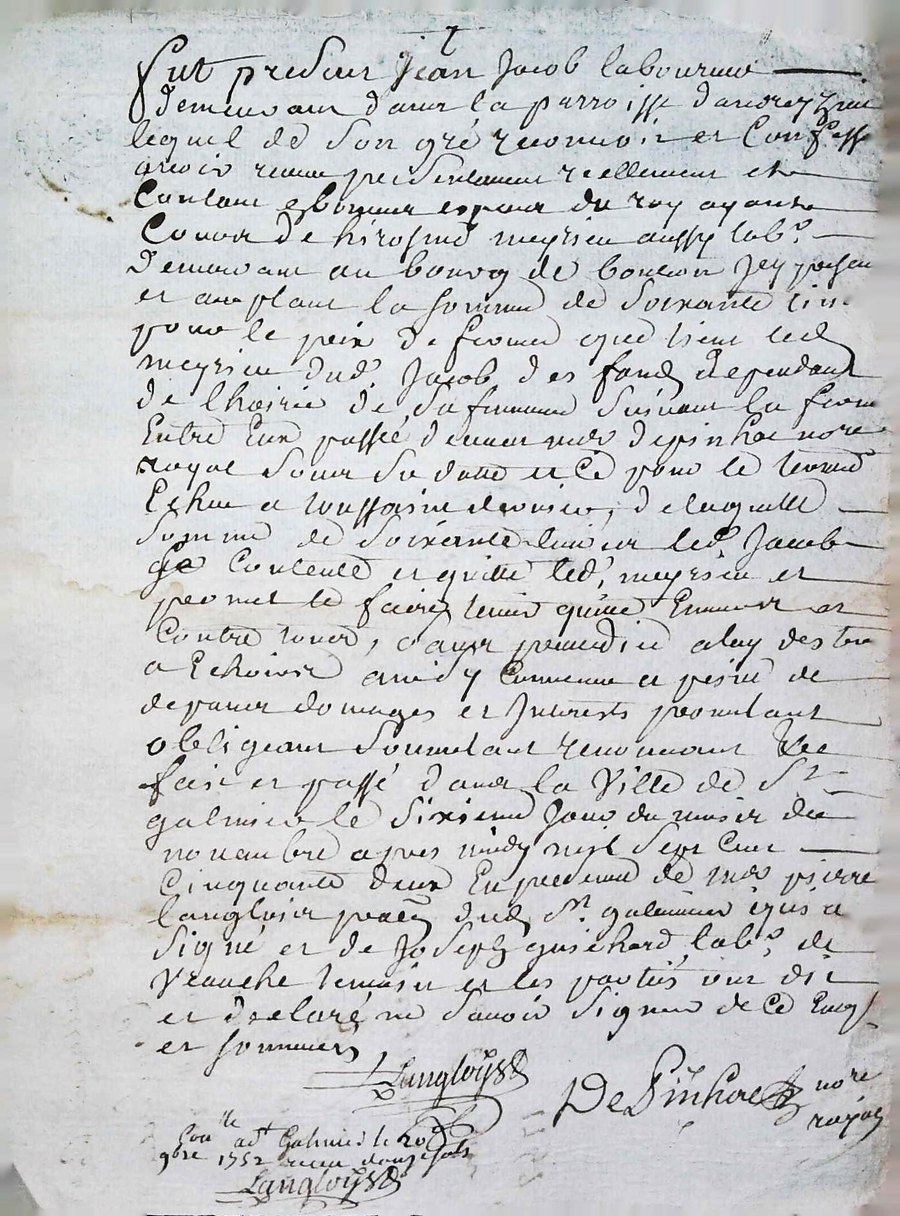 Fut presant Jean Jacob laboureur
demeurant dans la parroisse
lequel de son gré reconnoit et Confesse
avoir receu presentement reellement et
Contant en bonnes especes du roy ayants
Cours de hierosme meyrieu aussy lab.r
demeurant au bourg de
et la somme de Soixante
pour le prix de ferme que tient led
meyrieu dud. Jacob des fonds dependant
de lhoirie de sa femme suivant la ferme
Entre Eux passée devant me Depinhac nore
royal sous sa datte et Ce pour le terme
Echeu a toussaint dernier, de laquelle
Somme de soixante livres led. Jacob
Se Contente et quitte led. meyrieu et
promet le faire tenir quitte Envers et
Contre tous, sans prejudice
a Echoir ainsy Convenu a peine de
depans domages et Interests promettant
obligeant soumettant renonceant &c
fait et passé dans la Ville de St
galmier le sixieme Jour du mois de
novambre apres midy mil sept Cent
Cinquante deux En presence de me pierre
langlois dud. St. galmier qui a
Signé et de Joseph guichard lab.r de
Vranche temoins et les parties ont dit
et declaré ne savoir signer de Ce Enqs
et sommés
Langloys
DePinhac nore
royal
Con.lle a St Galmier le
9bre 1752 receu douze sols
Langloys